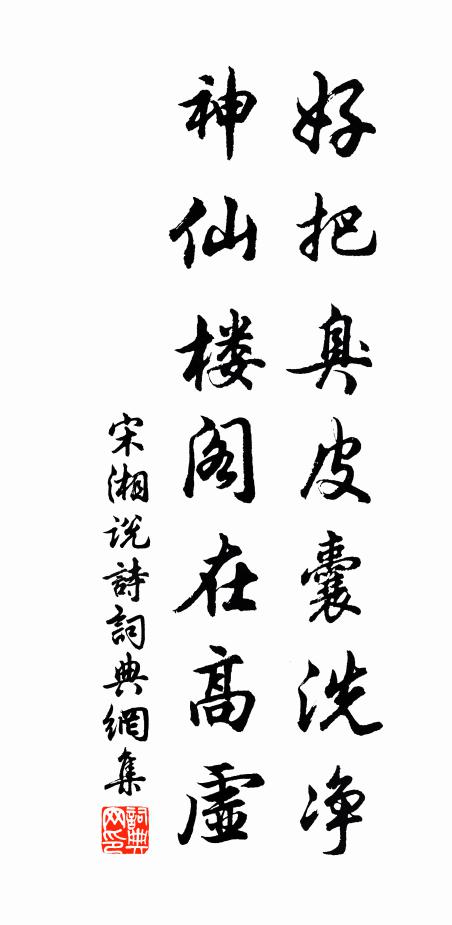 好把臭皮囊洗净
神仙楼阁在高虚
宋湘说詩詞典網集
詞典网印